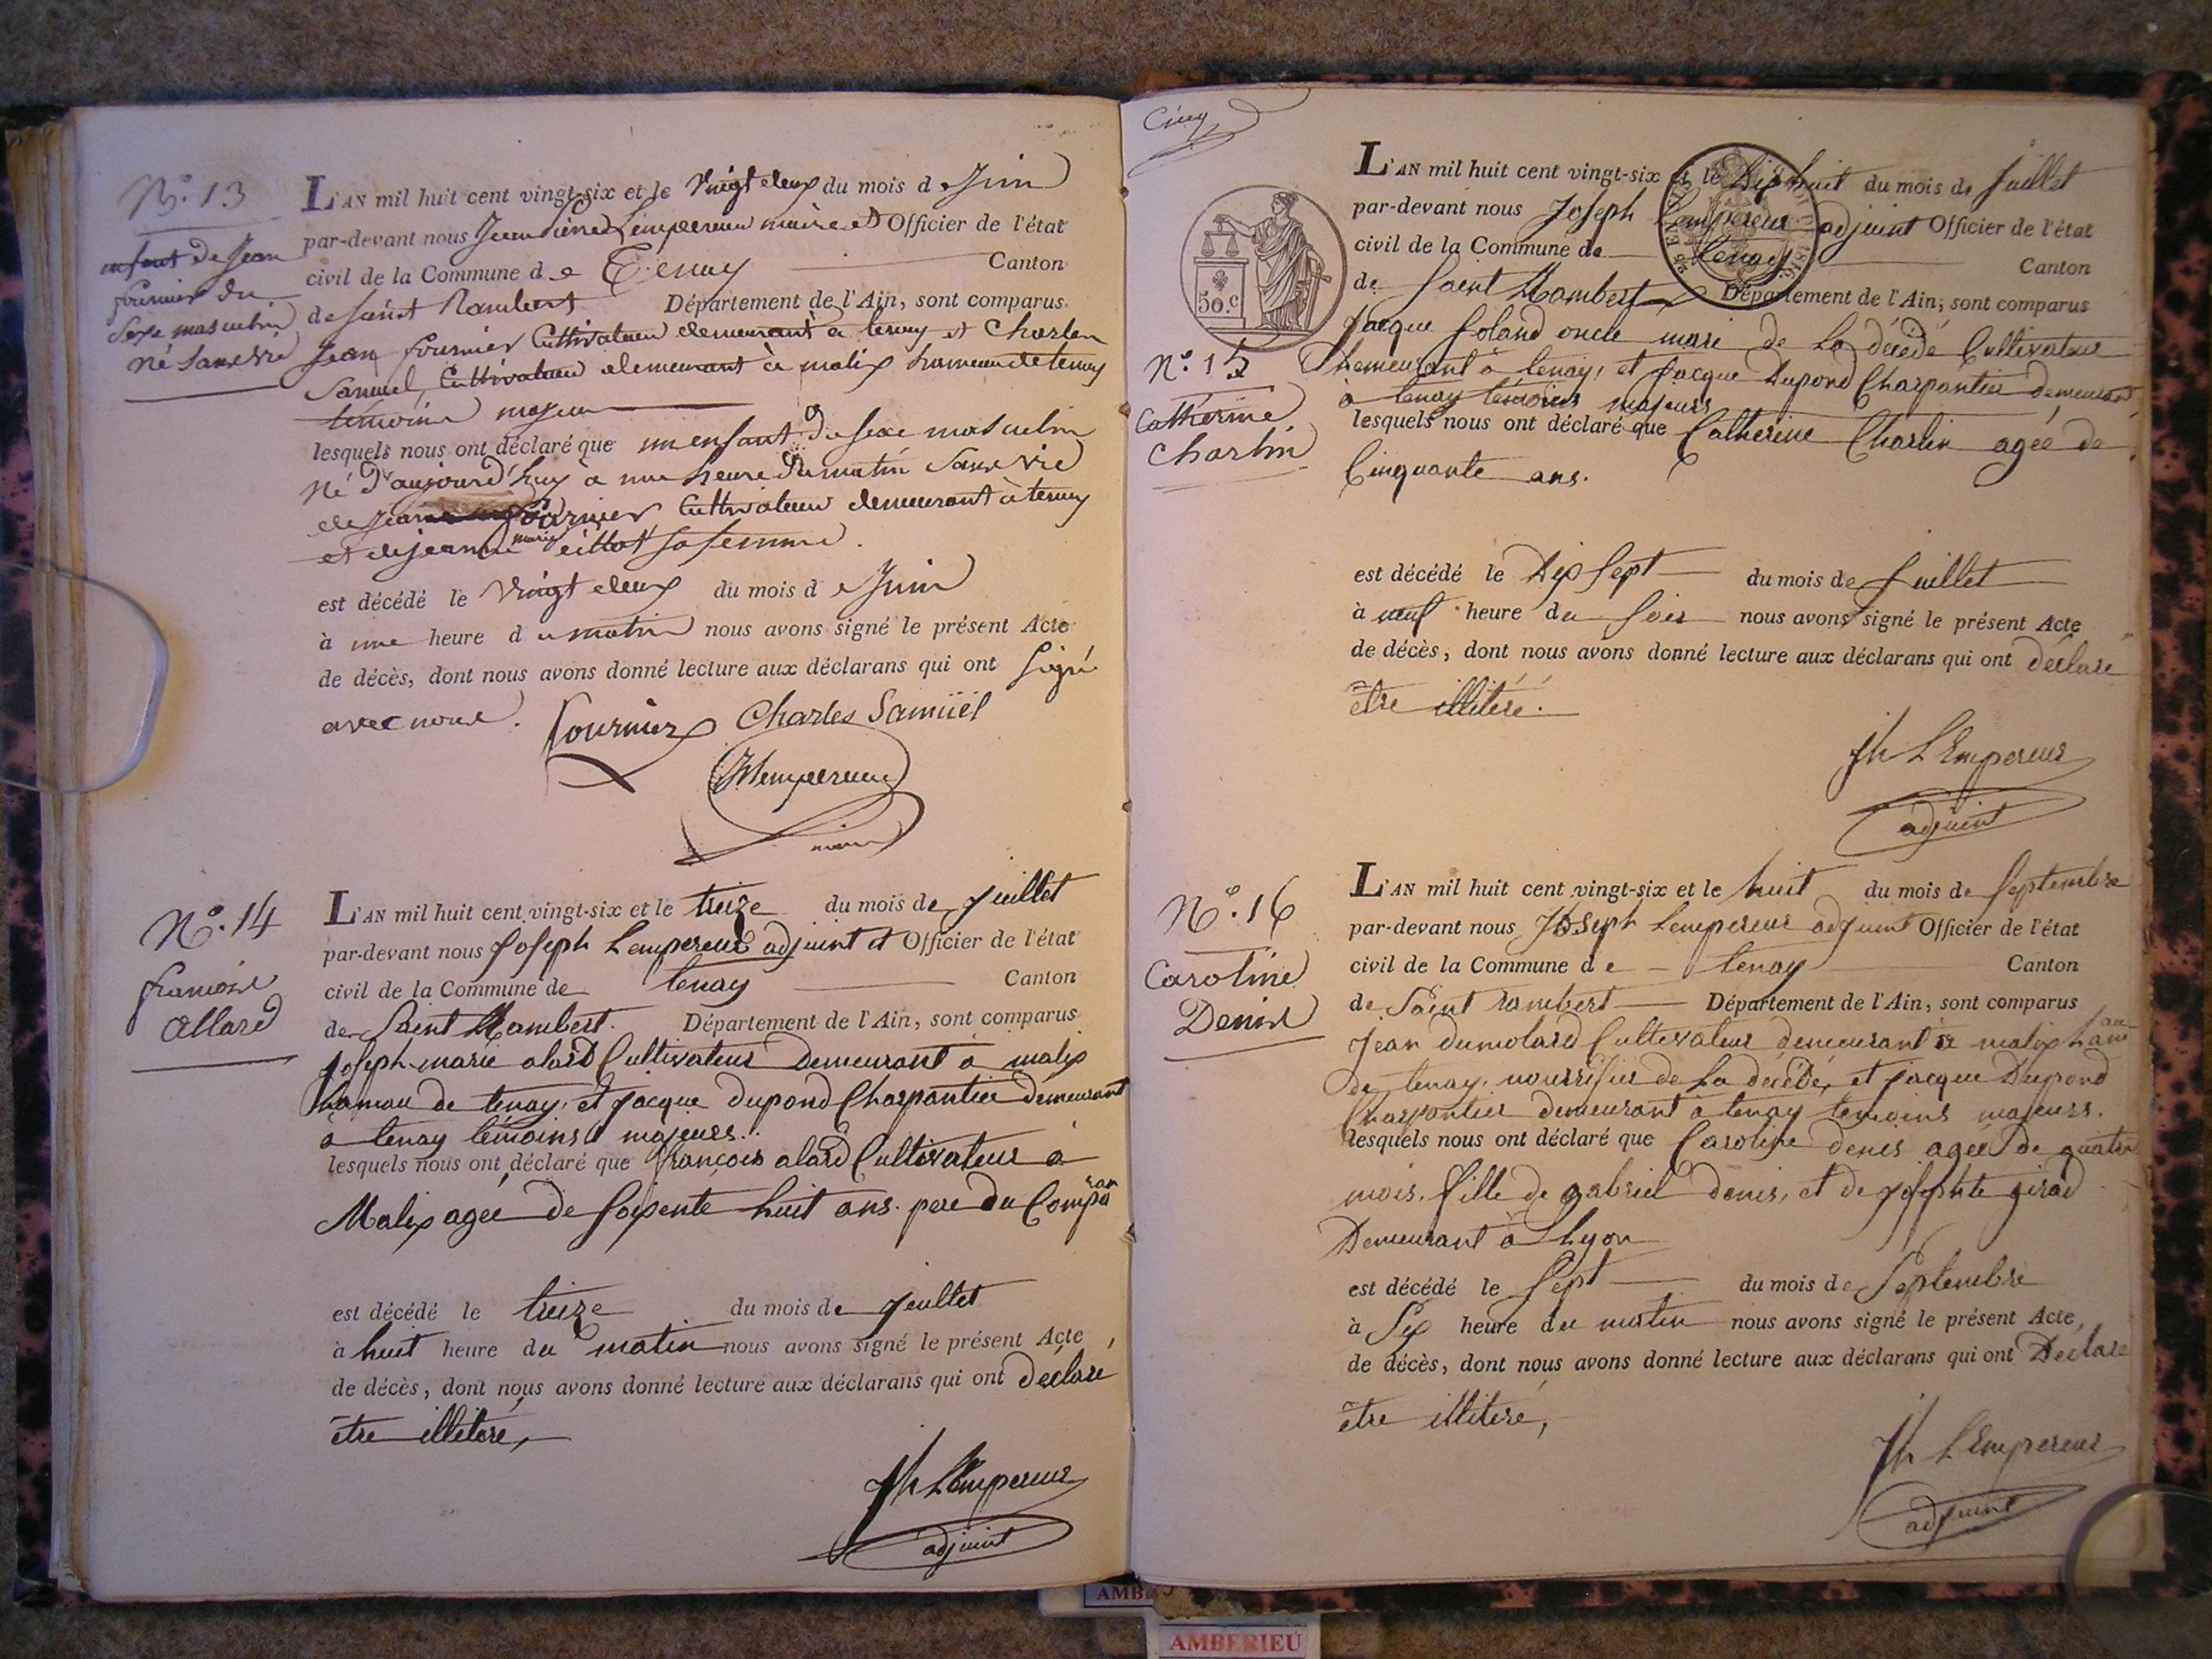 N.° 13
enfant de Jean
fournier du
Sexe masculin
né sans vie
L'AN mil huit cent vingt-six et le vingt deux du mois de Juin
par-devant nous Jean Pierre Lempereur maire et Officier de l'état
civil de la Commune de Tenay Canton
de saint Rambert Département de l'Ain, sont comparus
Jean fournier Cultivateur demeurant à tenay et Charles
Samuel, Cultivateur demeurant à malix hameau de tenay
témoins majeurs
lesquels nous ont déclaré que un enfant du sexe masculin
né d'aujourd'huy à une heure du matin sans vie
de jean fournier Cultivateur demeurant à tenay
et de jeanne marie sa femme.
est décédé le vingt deux du mois de Juin
à une heure du matin nous avons signé le présent Acte
de décès, dont nous avons donné lecture aux déclarans qui ont signé
avec nous.
fournier Charles Samüel
Lempereur
maire
N.° 14
françois
allard
L'AN mil huit cent vingt-six et le treize du mois de juillet
par-devant nous Joseph Lempereur adjoint et Officier de l'état
civil de la Commune de tenay Canton
de Saint Rambert. Département de l'Ain, sont comparus
joseph-marie alard Cultivateur Demeurant à malix
hamau de tenay, et jacque dupond Charpantier demeurant
à tenay témoins majeurs..
lesquels nous ont déclaré que françois alard Cultivateur à
Malix agée de soixente huit ans. pere du Comparan
est décédé le treize du mois de jeullet
à huit heure du matin nous avons signé le présent Acte
de décès, dont nous avons donné lecture aux déclarans qui ont déclaré
être illiteré,
Jh LEmpereur
adjoint
Cinq
50.c
N.° 15
Catherine
Charlin
L'AN mil huit cent vingt-six et le Dix huit du mois de juillet
par-devant nous Joseph Lempereur adjoint Officier de l'état
civil de la Commune de tenay Canton
de Saint Rambert Département de l'Ain, sont comparus
Jacque Goland oncle mari de La décédé Cultivateur
Demeurant à tenay, et Jacque Dupond Charpantier demeurant
à tenay témoins majeurs
lesquels nous ont déclaré que Catherine Charlin agée de
Cinquante ans.
est décédé le Dix sept du mois de juillet
à neuf heure du soir nous avons signé le présent Acte
de décès, dont nous avons donné lecture aux déclarans qui ont déclaré
être illiteré.
Jh LEmpereur
adjoint
N.° 16
Caroline
Denis
L'AN mil huit cent vingt-six et le huit du mois de Septembre
par-devant nous Joseph Lempereur adjoint Officier de l'état
civil de la Commune de tenay Canton
de Saint rambert Département de l'Ain, sont comparus
Jean dumolard Cultivateur demeurant à malix hameau
de tenay. nourrisier de La décédé, et jacque Dupond
Charpantier demeurant à tenay temoins majeurs.
lesquels nous ont déclaré que Caroline denis agée de quatre
mois. fille de gabriel denis, et de josephte girad
Demeurant à Lhyon
est décédé le Sept du mois de Septembre
à Six heure du matin nous avons signé le présent Acte
de décès, dont nous avons donné lecture aux déclarans qui ont Déclaré
être illiteré,
Jh LEmpereur
adjoint
AMB
AMBERIEU